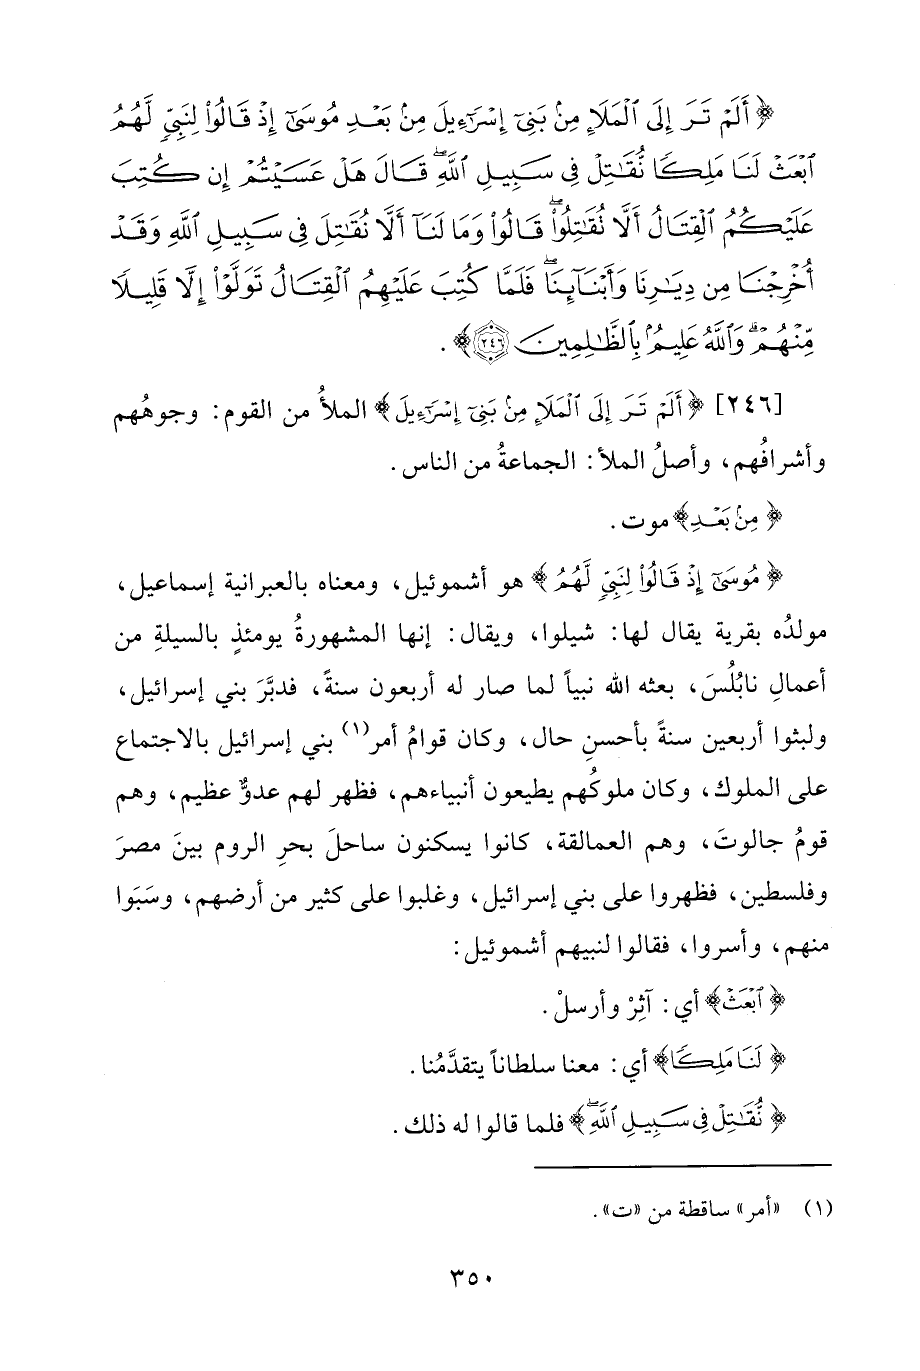 ﴿أَلَمْ تَرَ إِلَى ٱلْمَلَإِ مِنۢ بَنِىٓ إِسْرَٰٓءِيلَ مِنۢ بَعْدِ مُوسَىٰٓ إِذْ قَالُوا۟ لِنَبِىٍّ لَّهُمُ
ٱبْعَثْ لَنَا مَلِكًا نُّقَٰتِلْ فِى سَبِيلِ ٱللَّهِ ۖ قَالَ هَلْ عَسَيْتُمْ إِن كُتِبَ
عَلَيْكُمُ ٱلْقِتَالُ أَلَّا نُقَٰتِلُوا۟ ۖ قَالُوا۟ وَمَا لَنَآ أَلَّا نُقَٰتِلَ فِى سَبِيلِ ٱللَّهِ وَقَدْ
أُخْرِجْنَا مِن دِيَٰرِنَا وَأَبْنَآئِنَا ۖ فَلَمَّا كُتِبَ عَلَيْهِمُ ٱلْقِتَالُ تَوَلَّوْا۟ إِلَّا قَلِيلًا
مِّنْهُمْ ۗ وَٱللَّهُ عَلِيمٌۢ بِٱلظَّٰلِمِينَ ﴿٢٤٦﴾﴾.
[٢٤٦] ﴿أَلَمْ تَرَ إِلَى ٱلْمَلَإِ مِنۢ بَنِىٓ إِسْرَٰٓءِيلَ﴾ الملأُ من القوم: وجوهُهم
وأشرافُهم، وأصلُ الملأ: الجماعةُ من الناس.
﴿مِنۢ بَعْدِ﴾ موت.
﴿مُوسَىٰٓ إِذْ قَالُوا۟ لِنَبِىٍّ لَّهُمُ﴾ هو أشموئيل، ومعناه بالعبرانية إسماعيل،
مولدُه بقرية يقال لها: شيلوا، ويقال: إنها المشهورةُ يومئذٍ بالسيلةِ من
أعمالِ نابُلُسَ، بعثه الله نبياً لما صار له أربعون سنةً، فدبَّرَ بني إسرائيل،
ولبثوا أربعين سنةً بأحسنِ حال، وكان قوامُ أمر(١) بني إسرائيل بالاجتماع
على الملوك، وكان ملوكُهم يطيعون أنبياءهم، فظهر لهم عدوٌّ عظيم، وهم
قومُ جالوتَ، وهم العمالقة، كانوا يسكنون ساحلَ بحرِ الروم بينَ مصرَ
وفلسطين، فظهروا على بني إسرائيل، وغلبوا على كثير من أرضهم، وسَبَوا
منهم، وأسروا، فقالوا لنبيهم أشموئيل:
﴿ٱبْعَثْ﴾ أي: آثِرْ وأرسلْ.
﴿لَنَا مَلِكًا﴾ أي: معنا سلطاناً يتقدَّمُنا.
﴿نُّقَٰتِلْ فِى سَبِيلِ ٱللَّهِ ۖ﴾ فلما قالوا له ذلك.
(١) «أمر» ساقطة من «ت».
٣٥٠